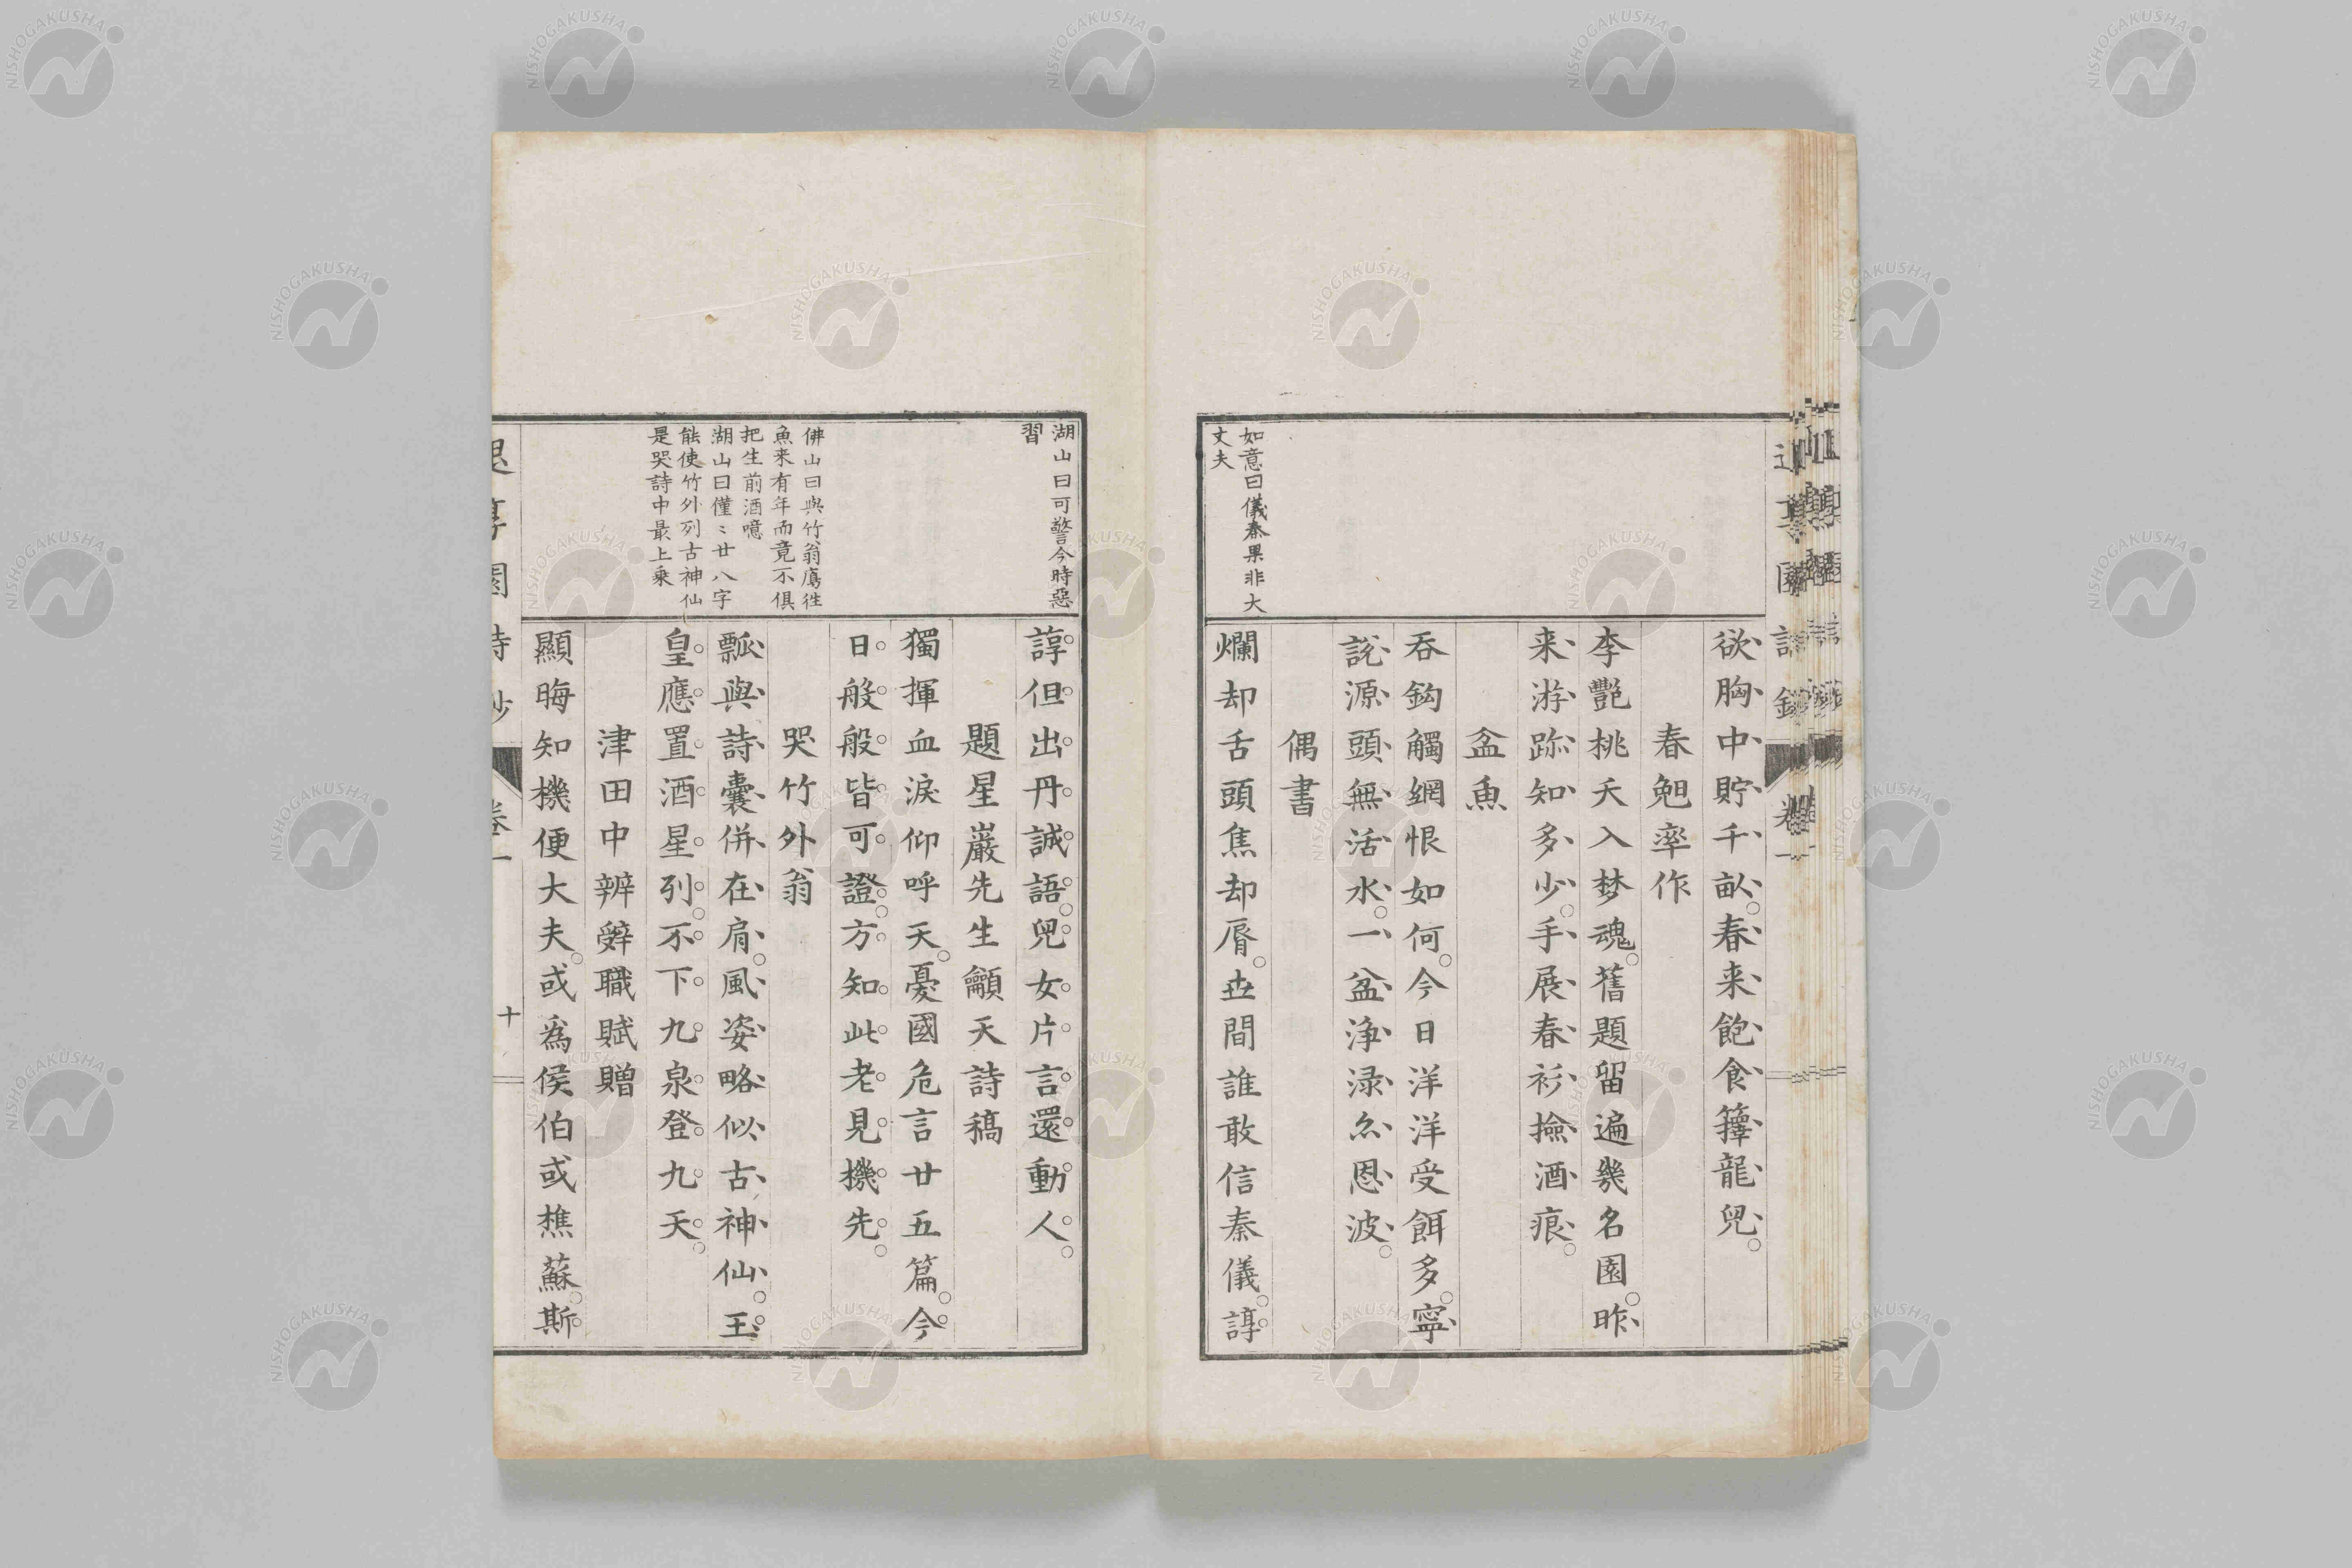 欲胸中貯千畝。春来飽食籜龍兒。
春兔率作
李艷桃夭入梦魂。舊題留遍幾名園。昨
来游跡知多少。手展春衫撿酒痕。
盆魚
呑鈎觸網恨如何。今日洋洋受餌多。寧
説源頭無活水。一盆浄渌亦恩波。
偶書
如意曰儀秦果非大
丈夫
爛却舌頭焦却脣。世間誰敢信秦儀。諄
湖山曰可警今時惡
習
諄但出丹誠語。兒女片言還動人。
題星巖先生籲天詩稿
獨揮血淚仰呼天。憂國危言廿五篇。今
日般般皆可證。方知此老見機先。
哭竹外翁
佛山曰與竹翁鴈徃
魚来有年而竟不俱
把生前酒噫
湖山曰僅〻廿八字
能使竹外列古神仙
是哭詩中最上乗
瓢與詩囊併在肩。風姿略似古神仙。玉
皇應置酒星列。不下九泉登九天。
津田中辨辭職賦贈
顯晦知機便大夫。或為侯伯或樵蘇。斯
詩鈔
卷一
十
NISHOGAKUSHA